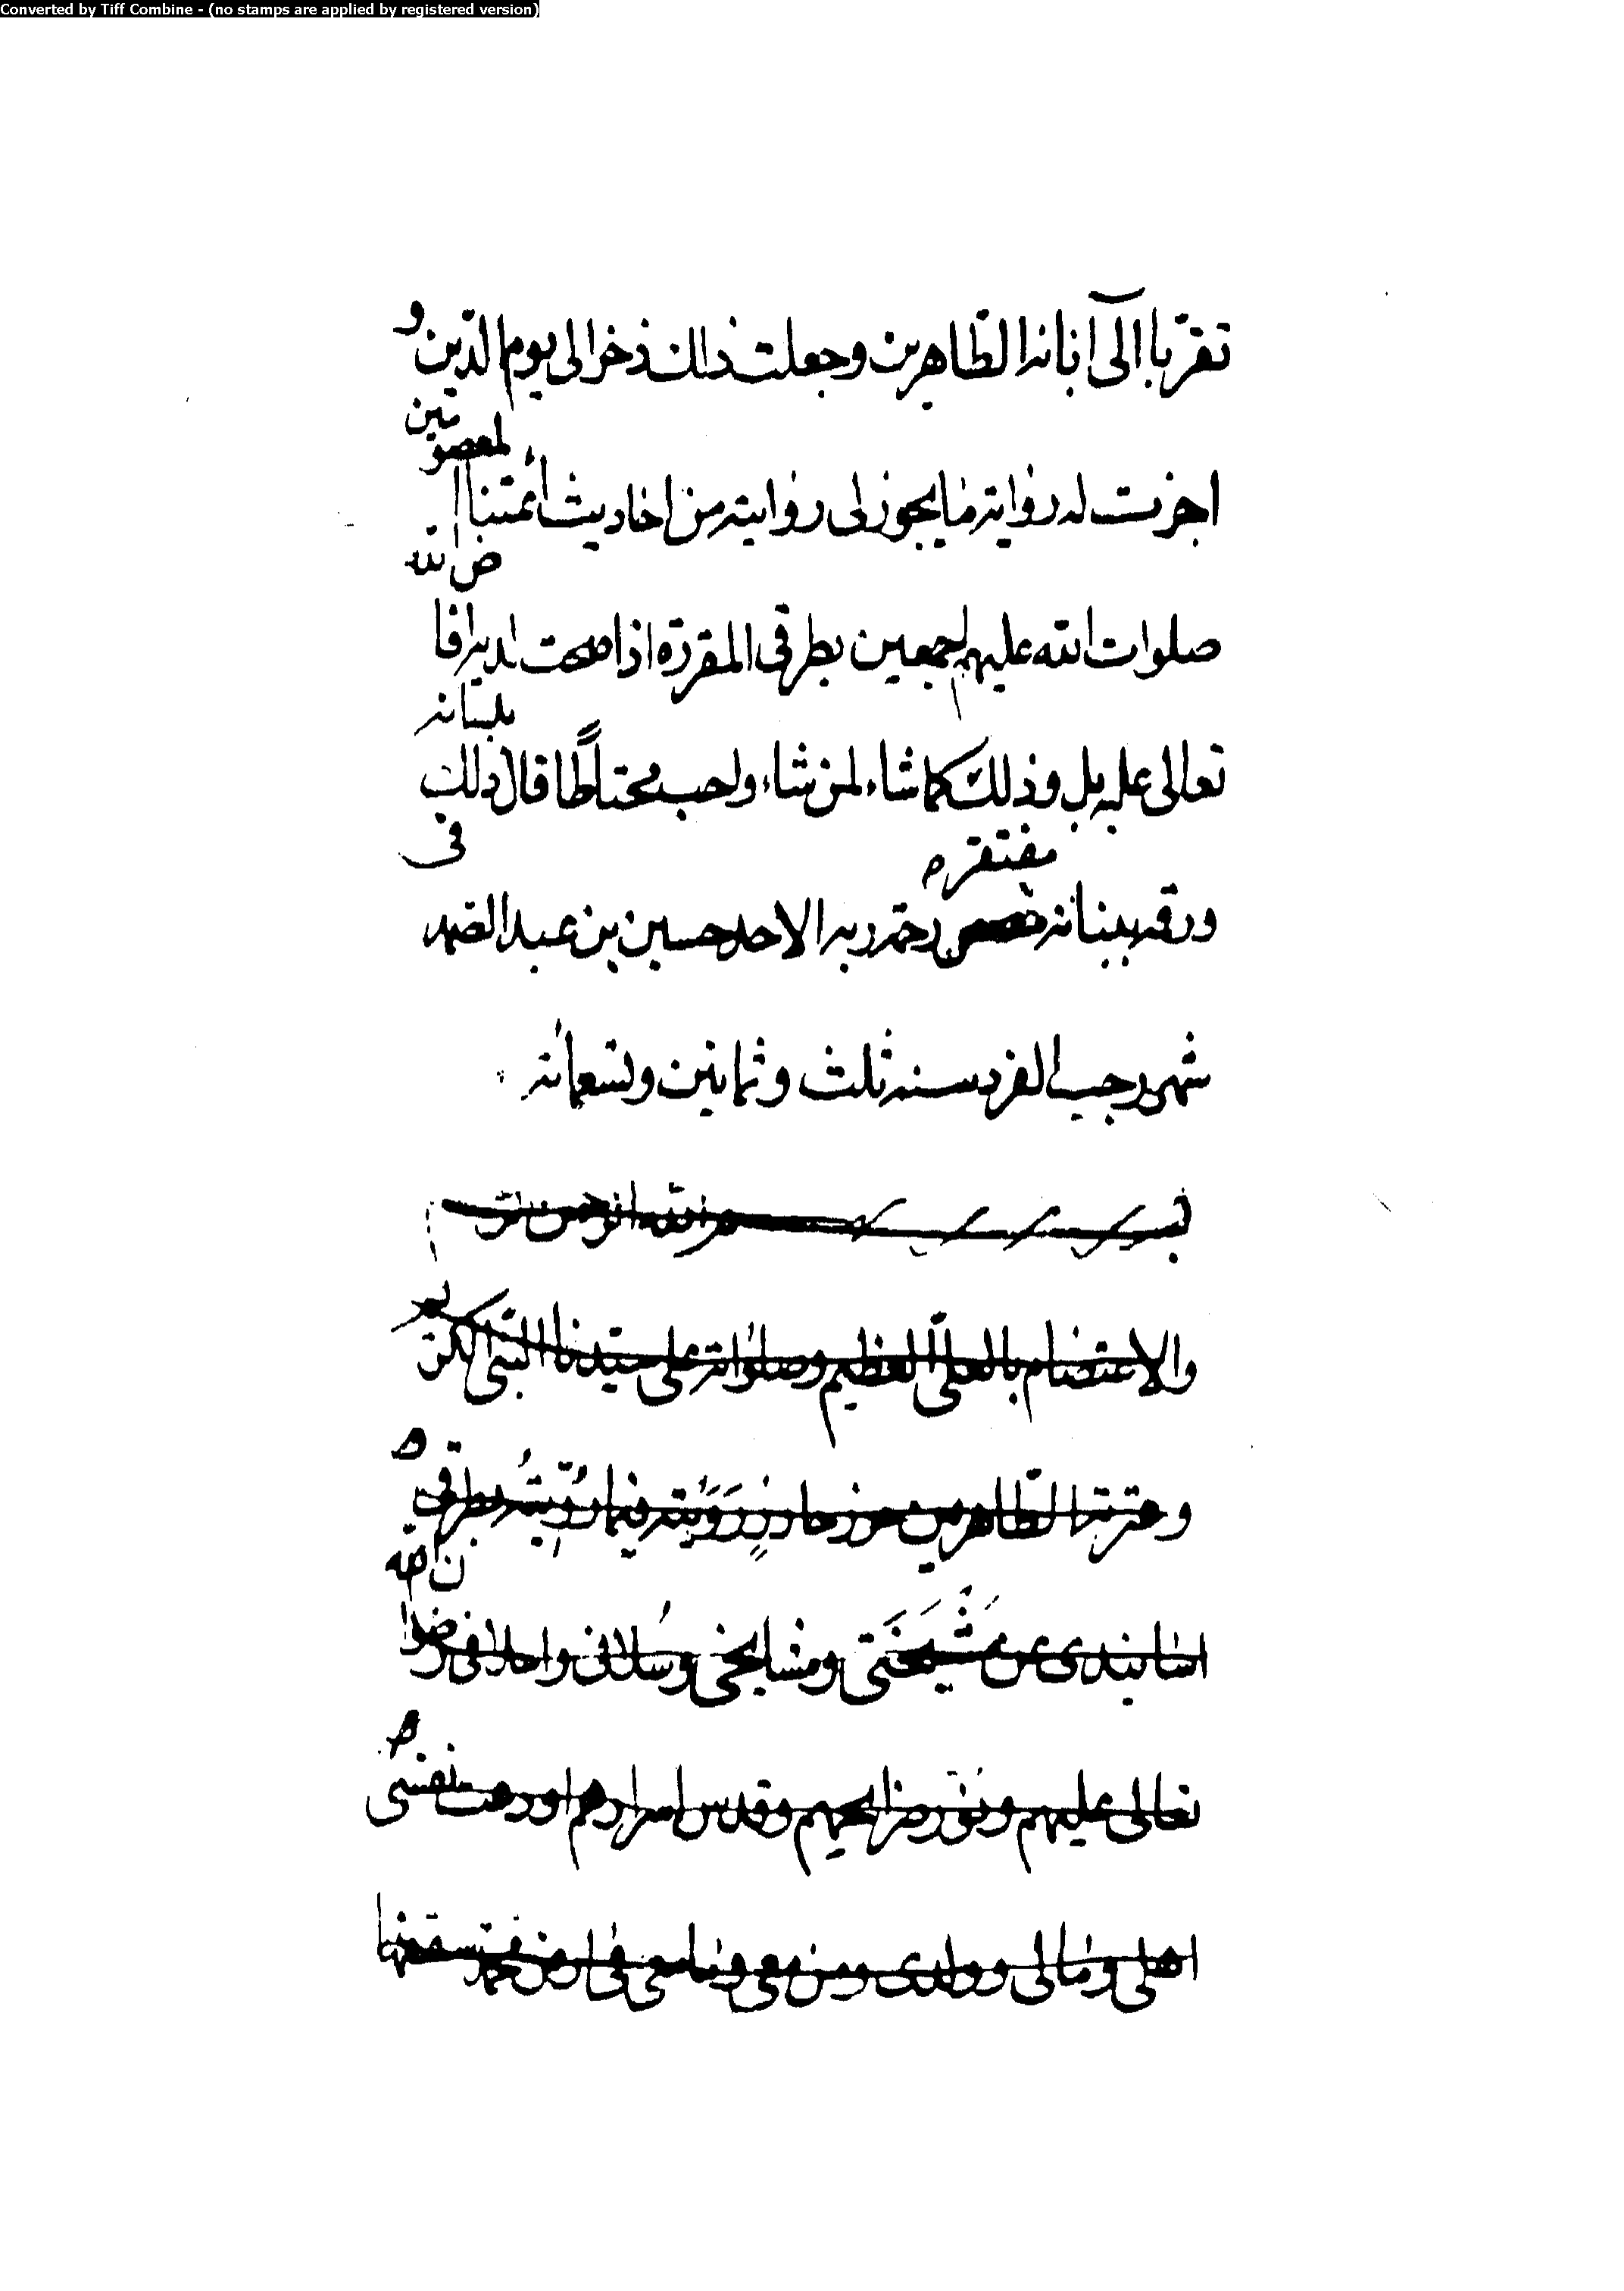 Converted by Tiff Combine - (no stamps are applied by registered version)
تقربا الى آبائه الطاهرين وجعلت ذلك ذخرا الى يوم الدين و
اجزت له رواية ما يجوز لى روايته من احاديث ائمتنا المعصومين
صلوات الله عليهم اجمعين بطرقى المقررة اذا صحت لديه افاض الله
تعالى عليه بل وذلك كما شاء لمن شاء واحب محتاطا قال ذلك بلسانه
ورقمه ببنانه مفتقر رحمة ربه الاحد حسين بن عبد الصمد فى
شهر رجب الفرد سنه ثلث وثمانين وتسعمائه
بسم الله الرحمن
والاعتصام بالعلى العظيم وصلواته على سيدنا النبى الكريم
وعترته الطاهرين
اسانيدى عن مشيختى ومشايخى واسلافى رضوان الله
تعالى عليهم ونور ضرايحهم وقدس اسرارهم نفسى
اهلى ومالى وولدى ومن